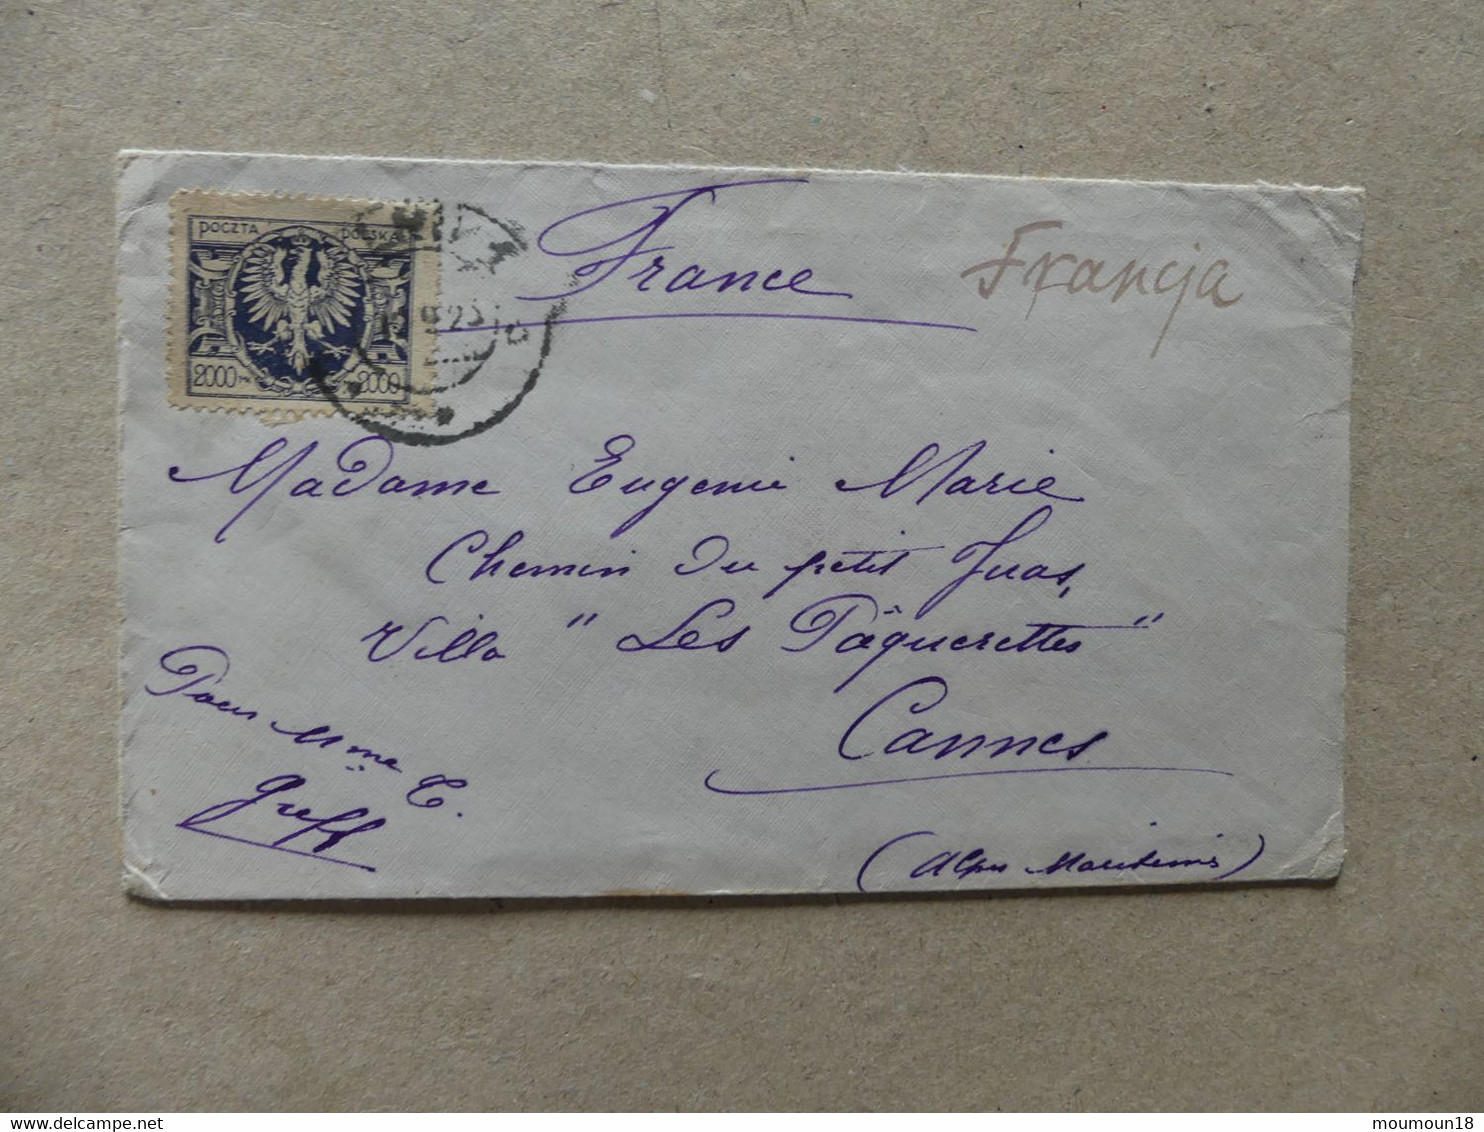 POCZTA POLSKA
2000 MK 2000
France
Francja
Madame Eugenie Marie
Chemin du petit Juas,
Villa "Les Pâquerettes"
Cannes
(Alpes Maritimes)
Pour Mme C.
Greff
moumoun18